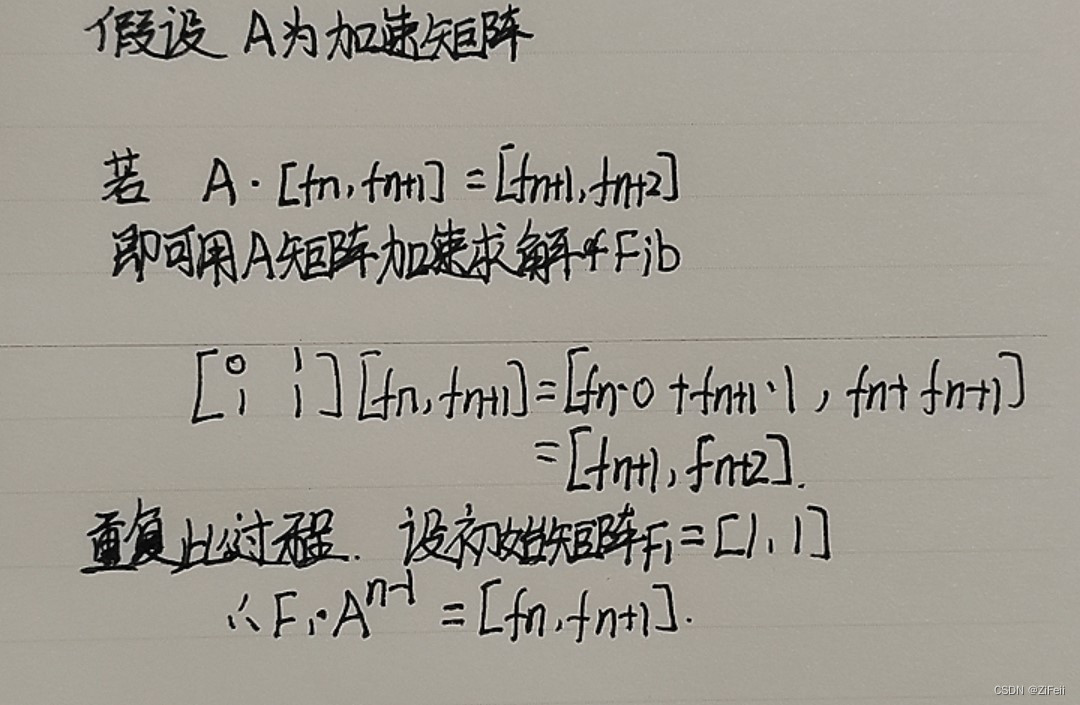 假设 A为加速矩阵
若 A·[fn,fn+1]=[fn+1,fn+2]
即可用A矩阵加速求解Fib
[0 1
1 1][fn,fn+1]=[fn·0+fn+1·1,fn+fn+1]
=[fn+1,fn+2].
重复此过程. 设初始矩阵F1=[1,1]
∴F1·A^n-1=[fn,fn+1].
CSDN @ZiFeii